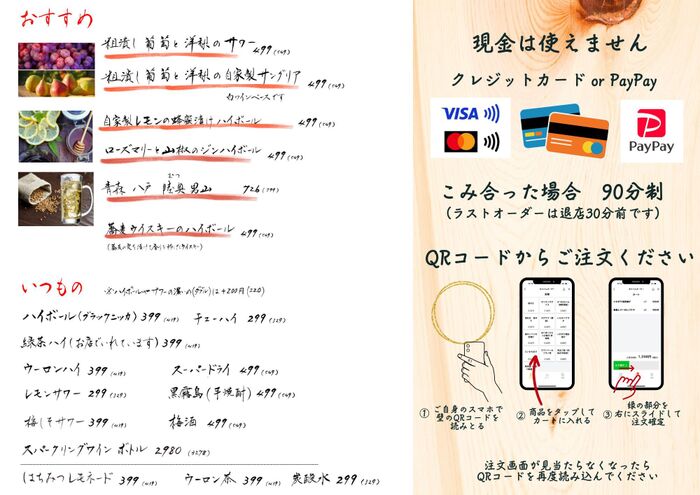 おすすめ
粗潰し葡萄と洋梨のサワー 499 (549)
粗潰し葡萄と洋梨の自家製サングリア 499 (549)
白ワインベースです
自家製レモンの蜂蜜漬けハイボール 499 (549)
ローズマリーと山椒のジンハイボール 499 (549)
青森 八戸 陸奥男山 726 (799)
むつ
蕎麦ウイスキーのハイボール 499 (549)
いつもの
ハイボール(ブラックニッカ) 399 (419) チューハイ 299 (329)
緑茶ハイ(お店でいれています) 399 (419)
ウーロンハイ 399 (419) スーパードライ 499 (549)
レモンサワー 299 (329) 黒霧島(芋焼酎) 499 (549)
梅しそサワー 399 (419) 梅酒 499 (549)
スパークリングワイン ボトル 2980 (3278)
はちみつレモネード 399 (419) ウーロン茶 399 (419) 炭酸水 299 (329)
現金は使えません
クレジットカード or PayPay
VISA
PayPay
こみ合った場合 90分制
(ラストオーダーは退店30分前です)
QRコードからご注文ください
① ご自身のスマホで
壁のQRコードを
読みとる
② 商品をタップして
カートに入れる
③ 緑の部分を
右にスライドして
注文確定
注文画面が見当たらなくなったら
QRコードを再度読み込んでください